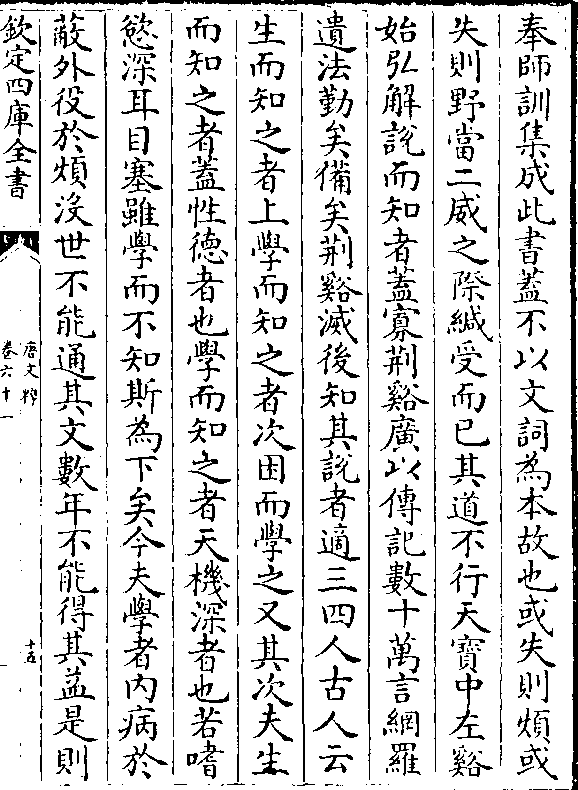 奉師訓集成此書蓋不以文詞為本故也或失則煩或
失則野當二威之際緘受而已其道不行天寶中左谿
始弘解說而知者蓋寡荆谿廣以傳記數十萬言網羅
遺法勤矣備矣荆谿滅後知其說者適三四人古人云
生而知之者上學而知之者次困而學之又其次夫生
而知之者蓋性德者也學而知之者天機深者也若嗜
慾深耳目塞雖學而不知斯為下矣今夫學者內病於
蔽外役於煩沒世不能通其文數年不能得其益是則
欽定四庫全書
唐文粹
卷六十一
十五